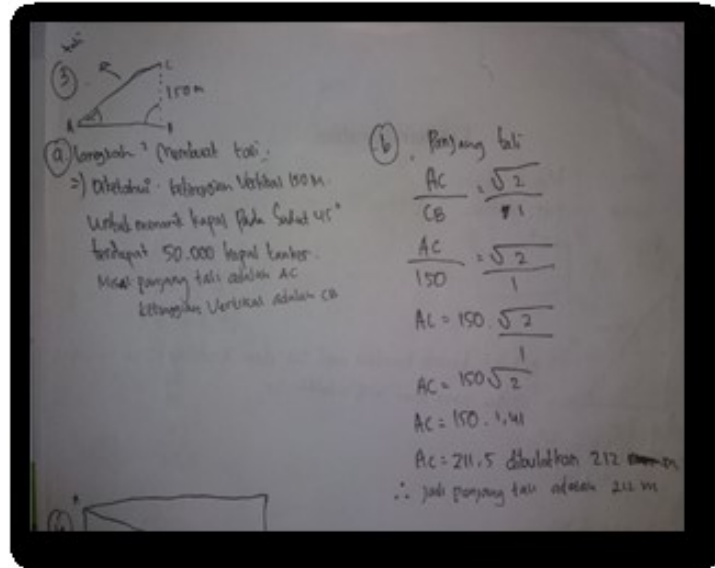 tali
③.
C
150 m
A B
ⓐ langkah² Membuat tali.
=) Diketahui. Ketinggian Vertikal 150 M.
Untuk menarik kapal Pada Sudut 45°
terdapat 50.000 kapal tanker.
Misal panjang tali adalah AC
Ketinggian Vertikal adalah CB
ⓑ. Panjang tali
AC/CB = √2/1
AC/150 = √2/1
AC = 150 . √2/1
AC = 150√2
AC = 150 . 1,41
AC = 211.5 dibulatkan 212 m
∴ Jadi panjang tali adalah 212 m